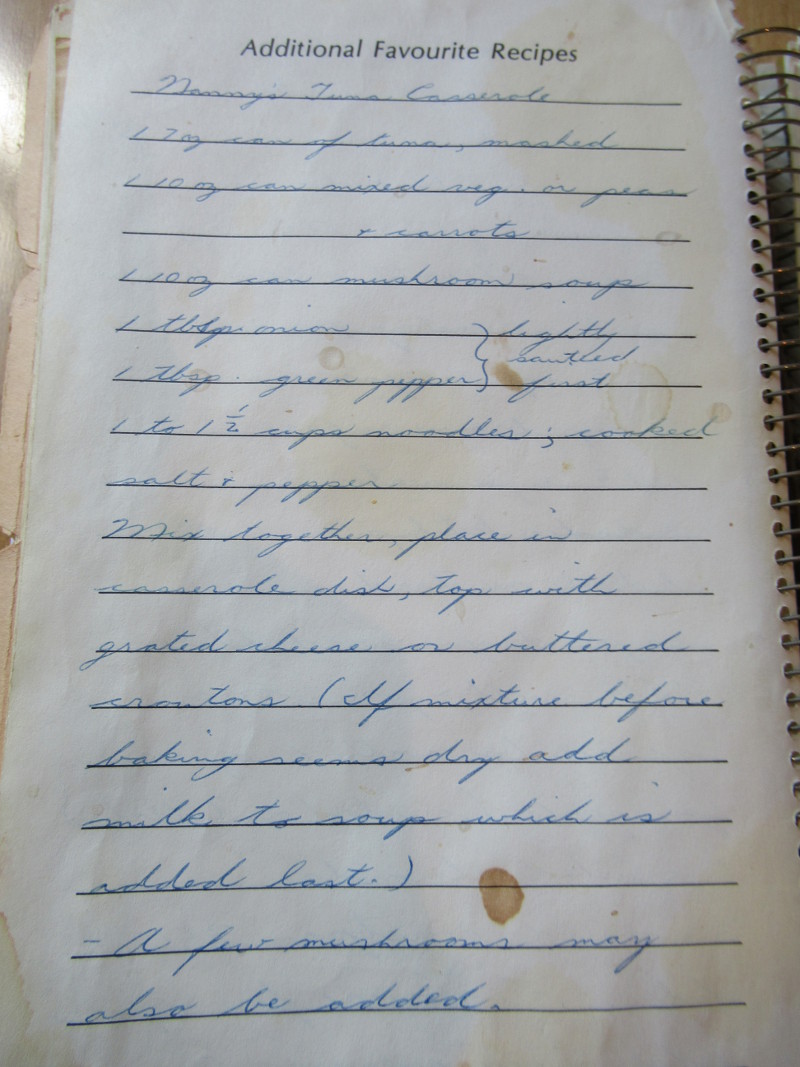 Additional Favourite Recipes
Nanny's Tuna Casserole
1 7oz can of tuna, mashed
1 10 oz can mixed veg. or peas
+ carrots
1 10 oz can mushroom soup
1 tbsp. onion } lightly
sautéed
1 tbsp. green pepper } first
1 to 1 1/2 cups noodles; cooked
salt + pepper
Mix together, place in
casserole dish, top with
grated cheese or buttered
croutons. (If mixture before
baking seems dry add
milk to soup which is
added last.)
- A few mushrooms may
also be added.